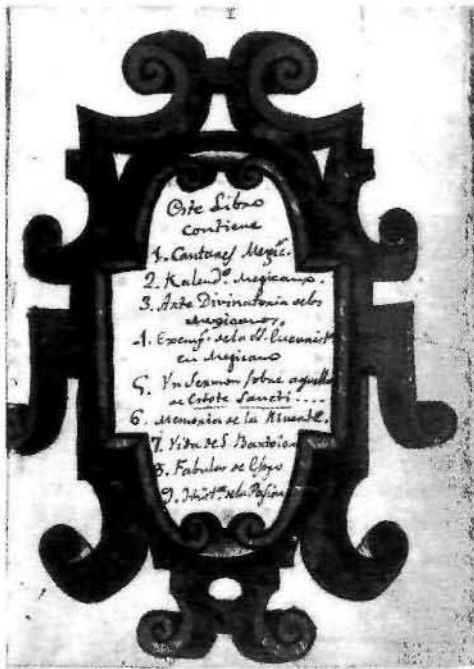 I
Este Libro
contiene
1. Cantares Mexic.
2. Kalendº. Megicano.
3. Arte Divinatoria de los
Megicanos.
4. Exempˢ. de la Sª. Eucarist
en Megicano
5. Un Sermon sobre aquello
de Estote Sancti....
6. Memoria de la Muerte.
7. Vida de S. Bartolome
8. Fabulas de Esopo
9. Histª. de la Pasion